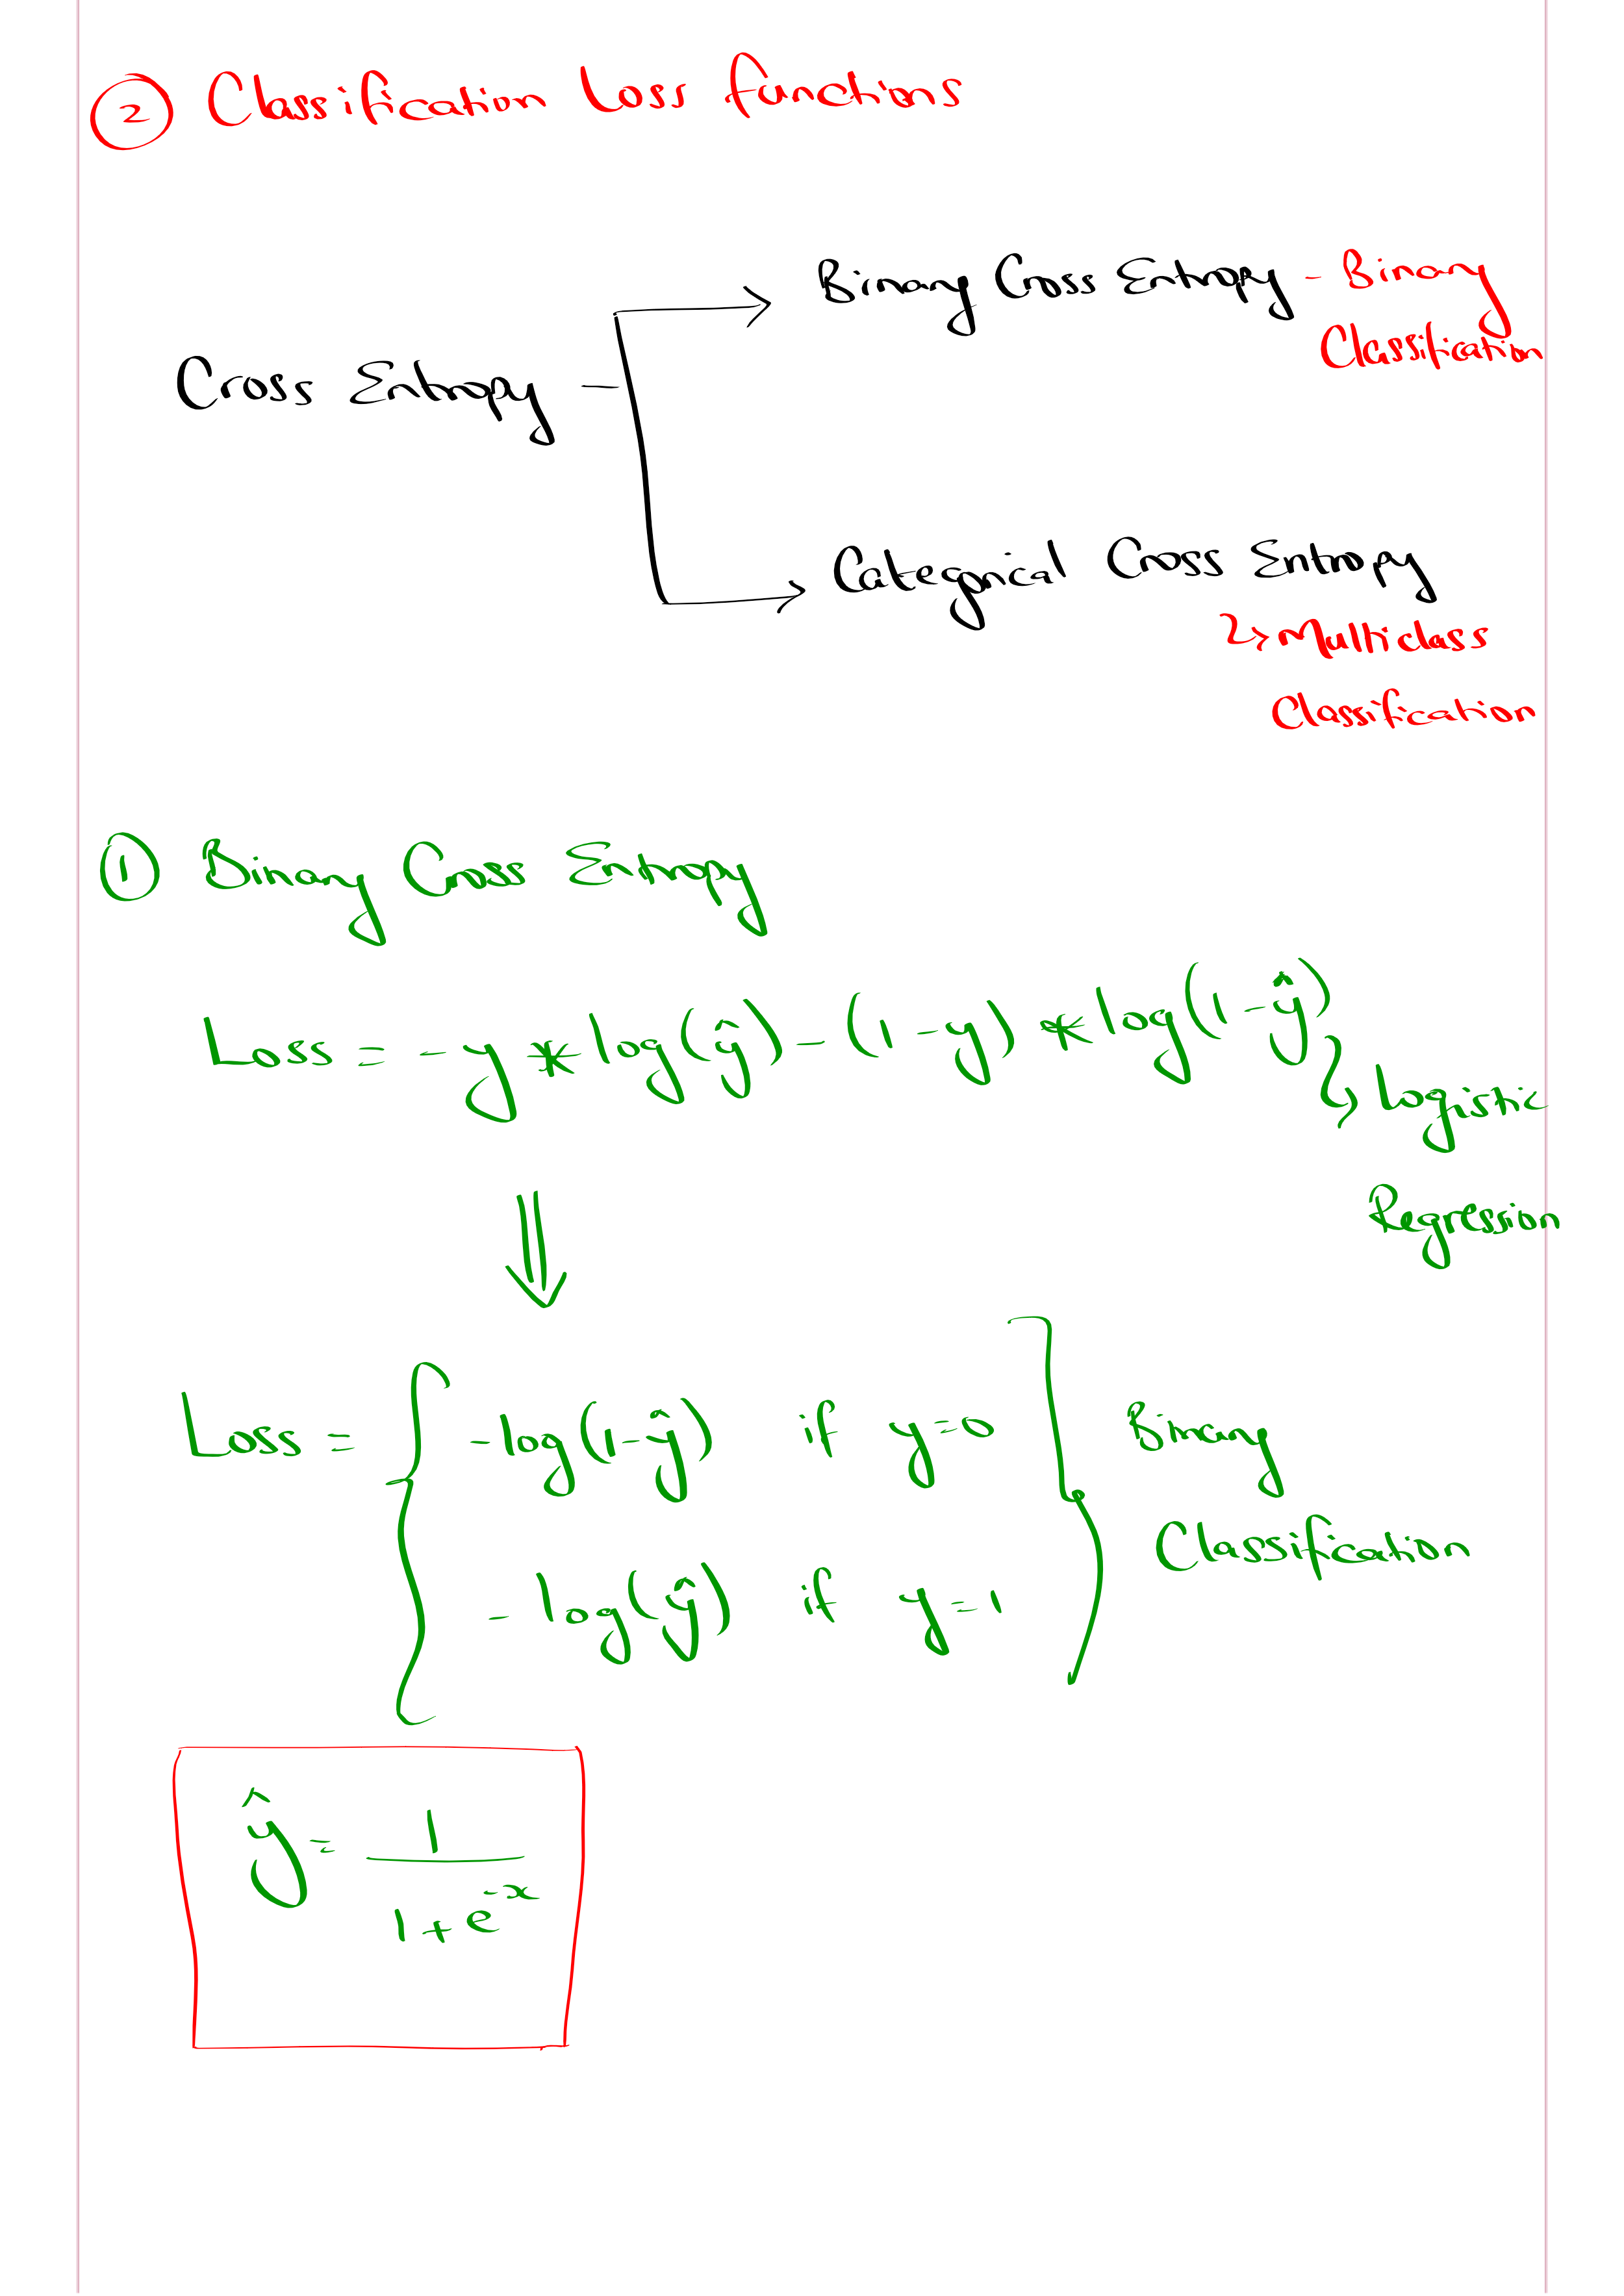 ② Classification Loss functions
Binary Cross Entropy - Binary
Classification
Cross Entropy -
Categorical Cross Entropy
↳ Multiclass
Classification
① Binary Cross Entropy
Loss = - y * log(ŷ) - (1 - y) * log(1 - ŷ)
↳ Logistic
Regression
⇓
Loss = { -log(1-ŷ) if y=0
- log(ŷ) if y=1
Binary
Classification
ŷ = 1 / (1 + e^-x)